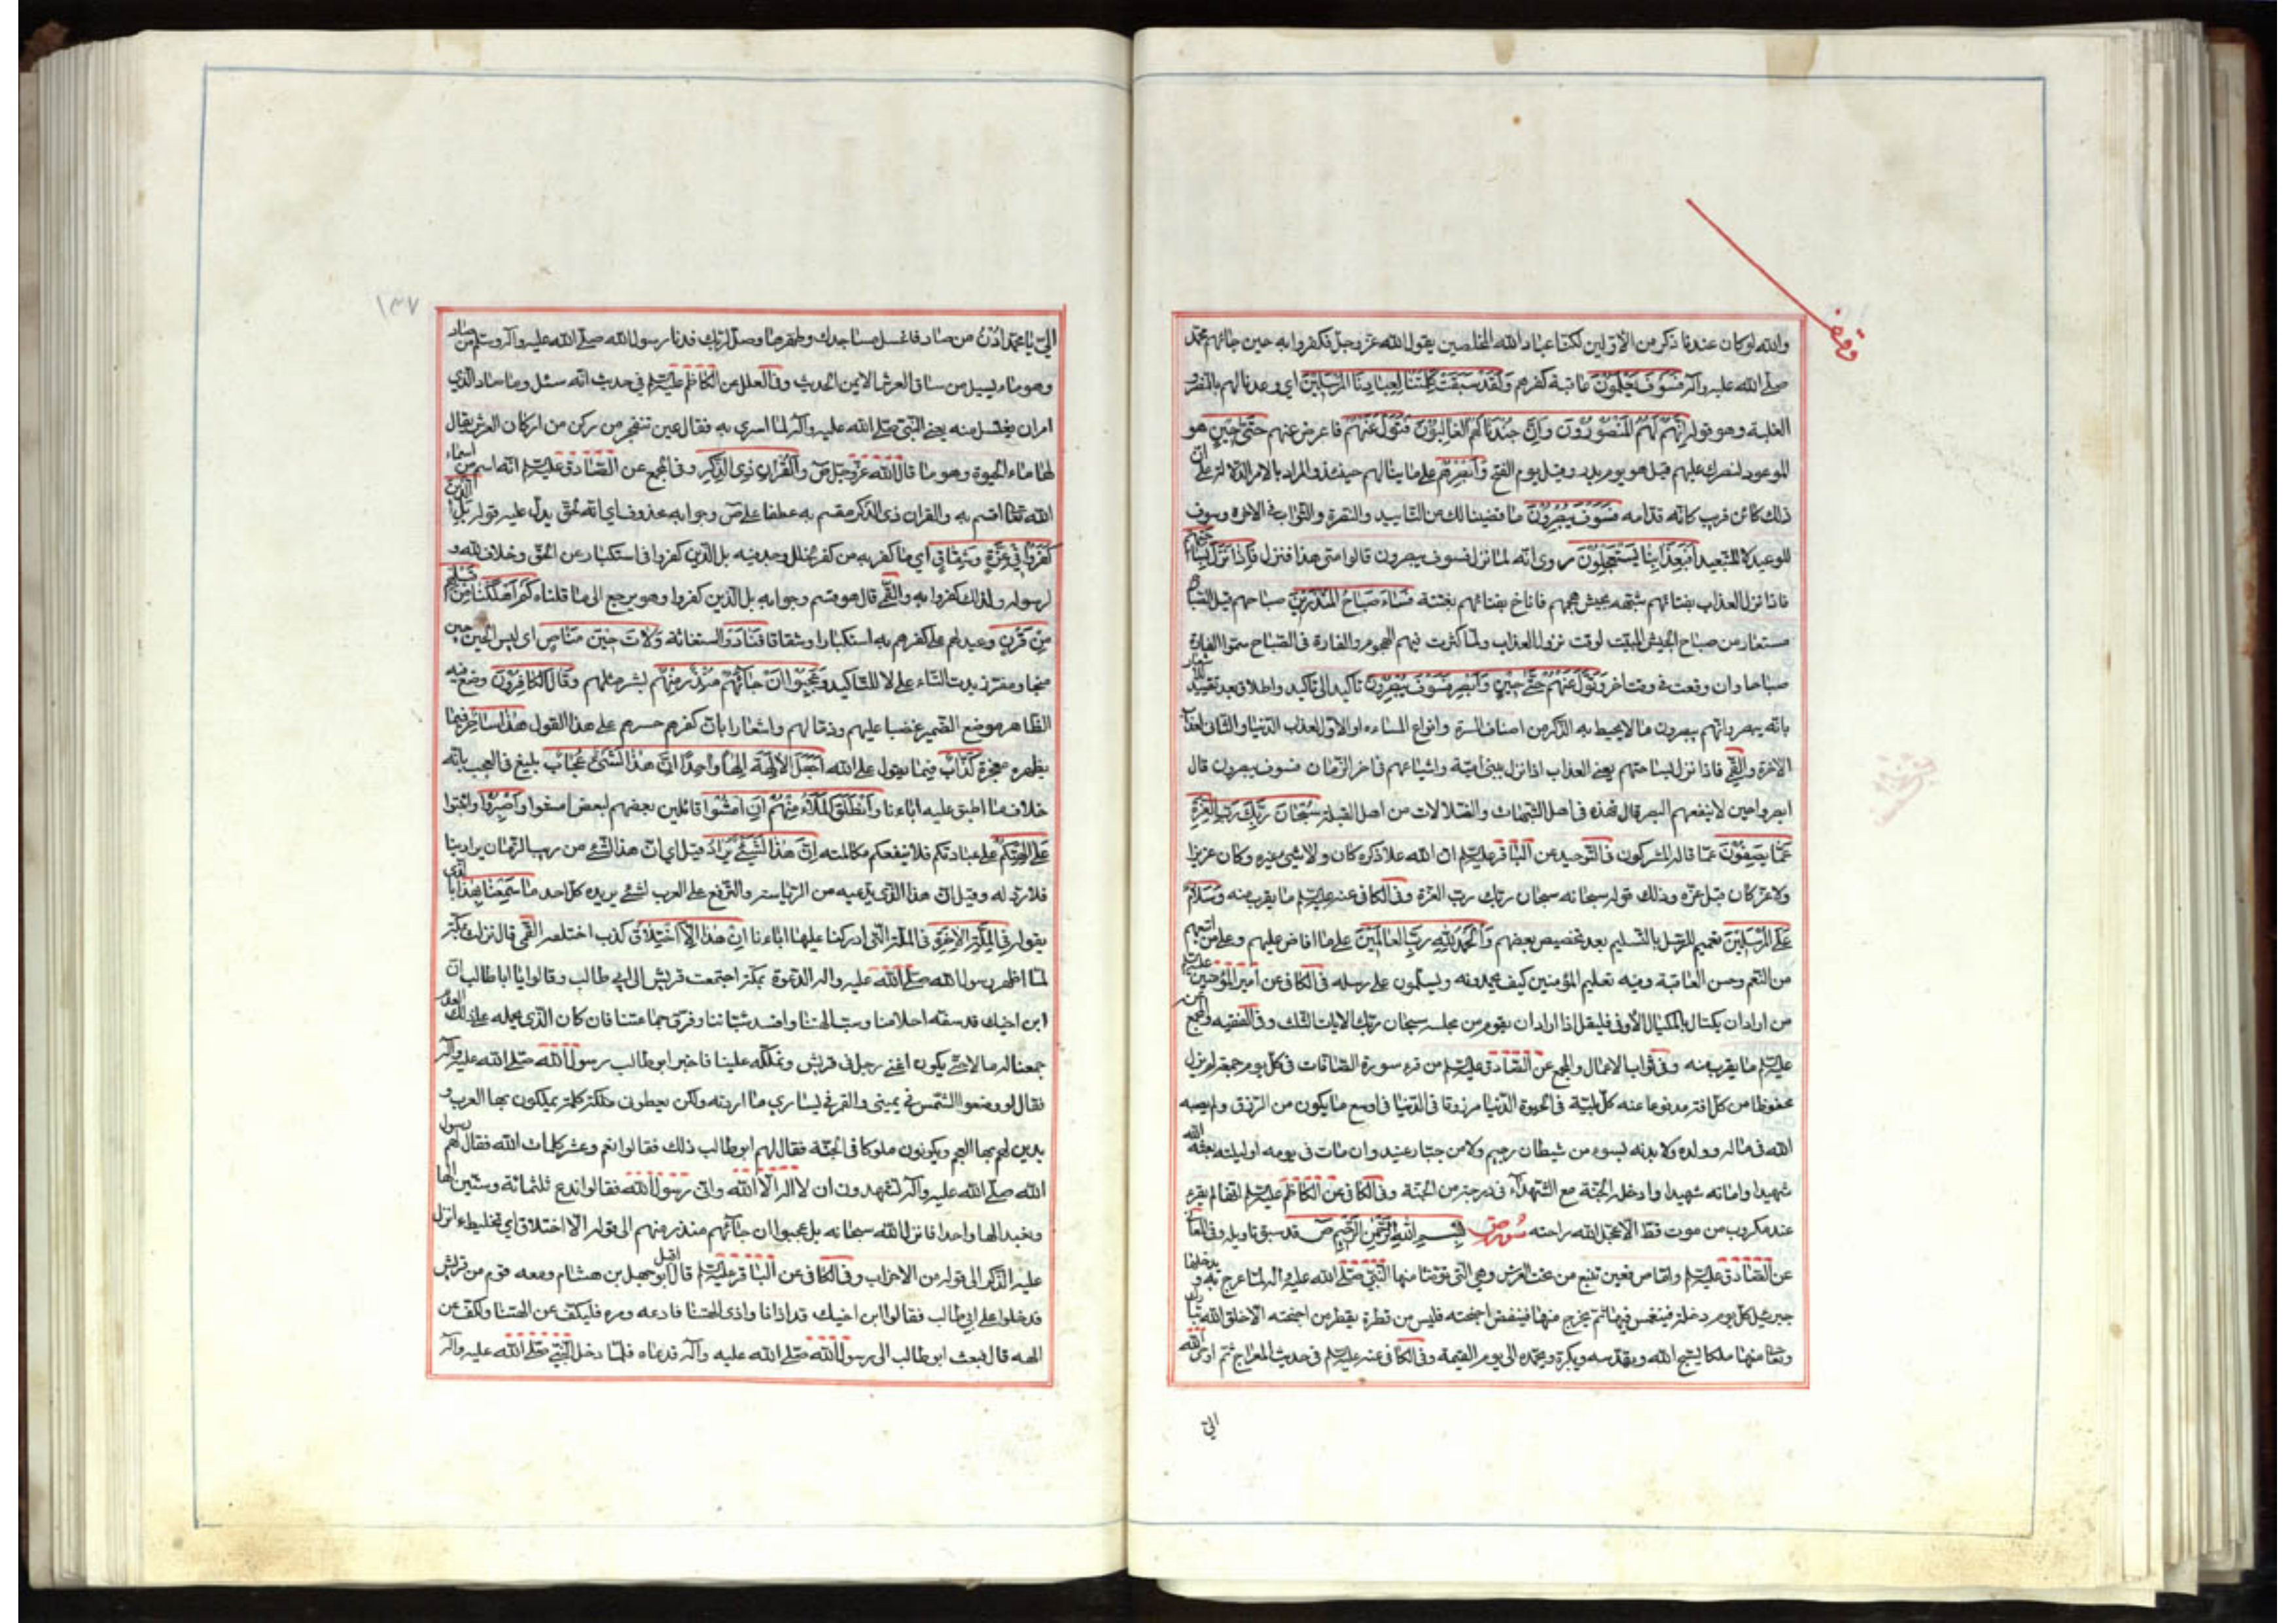 وقف
والله لو كان عندنا ذكر من الاولين لكنا عباد الله المخلصين يقول الله عز وجل فكفروا به حين جائهم محمد
صلى الله عليه وآله فَسَوْفَ يَعْلَمُونَ عاقبة كفرهم وَلَقَدْ سَبَقَتْ كَلِمَتُنَا لِعِبَادِنَا الْمُرْسَلِينَ اي وعدنا لهم بالنصر و
الغلبة وهو قوله اِنَّهُمْ لَهُمُ الْمَنْصُورُونَ وَاِنَّ جُنْدَنَا لَهُمُ الغَالِبُونَ فَتَوَلَّ عَنْهُمْ فاعرض عنهم حَتّى حِينٍ هو
الموعود لنصرك عليهم قيل هو يوم بدر وقيل يوم الفتح وَاَبْصِرْهُمْ على ما ينالهم حينئذ والمراد بالامر الدلالة على ان
ذلك كائن قريب كانه قدامه فَسَوْفَ يُبْصِرُونَ ما قضينا لك من التاييد والنصرة والثواب في الاخرة وسوف
للوعيد لا للتبعيد اَفَبِعَذَابِنَا يَسْتَعْجِلُونَ روى انه لما نزل فسوف يبصرون قالوا متى هذا فنزل فَاِذَا نَزَلَ بِسَاحَتِهِمْ
فاذا نزل العذاب بفنائهم شبهه بجيش هجمهم فاناخ بفنائهم بغتة فَسَاءَ صَبَاحُ الْمُنْذَرِينَ صباحهم قيل الصباح
مستعار من صباح الجيش المبيت لوقت نزول العذاب ولما كثرت فيهم الهجوم والغارة في الصباح سموا الغارة
صباحا وان وقعت في وقت اخر وَتَوَلَّ عَنْهُمْ حَتّى حِينٍ وَاَبْصِرْ فَسَوْفَ يُبْصِرُونَ تاكيد الى تاكيد واطلاق بعد تقييد للاشعار
بانه يبصر وانهم يبصرون ما لا يحيط به الذكر من اصناف المسرة وانواع المساءة او الاول لعذاب الدنيا والثاني لعذاب
الاخرة والقمي فاذا نزل بساحتهم يعني العذاب اذا نزل ببني امية واشياعهم في اخر الزمان فسوف يبصرون قال
ابصروا حين لا ينفعهم البصر قال فهذه في اهل الشبهات والضلالات من اهل القبلة سُبْحَانَ رَبِّكَ رَبِّ الْعِزَّةِ
عَمَّا يَصِفُونَ عما قاله المشركون في التوحيد عن الباقر عليه السلم ان الله علا ذكره كان ولا شيء غيره وكان عزيزا
ولا عز كان قبل عزه وذلك قوله سبحانه سبحان ربك رب العزة وفي الكافي عنه عليه السلم ما يقرب منه وَسَلَامٌ
عَلَى الْمُرْسَلِينَ تعميم للرسل بالتسليم بعد تخصيص بعضهم وَالْحَمْدُ لِلّهِ رَبِّ العَالَمِينَ على ما افاض عليهم وعلى من اتبعهم
من النعم وحسن العاقبة وفيه تعليم المؤمنين كيف يحمدونه ويسلمون على رسله في الكافي عن امير المؤمنين عليه السلم
من اراد ان يكتال بالمكيال الاوفى فليقل اذا اراد ان يقوم من مجلسه سبحان ربك الايات الثلث وفي الفقيه والمجمع عنه
عليه السلم ما يقرب منه وفي ثواب الاعمال والمجمع عن الصادق عليه السلم من قرء سورة الصافات في كل يوم جمعة لم يزل
محفوظا من كل افة مدفوعا عنه كل بلية في الحيوة الدنيا مرزوقا في الدنيا في اوسع ما يكون من الرزق ولم يصبه
الله في ماله وولده ولا بدنه بسوء من شيطان رجيم ولا من جبار عنيد وان مات في يومه او ليلته بعثه الله
شهيدا واماته شهيدا وادخله الجنة مع الشهداء في درجة من الجنة وفي الكافي عن الكاظم عليه السلم انها لم يقرء
عند مكروب من موت قط الا عجل الله راحته سورة ص بِسْمِ اللّهِ الرَّحْمنِ الرَّحِيمِ ص قد سبق تاويله وفي المعاني
عن الصادق عليه السلم واما ص فعين تنبع من تحت العرش وهي التي توضا منها النبي صلى الله عليه واله لما عرج به ويدخلها
جبرئيل كل يوم دخلة فينغمس فيها ثم يخرج منها فينفض اجنحته فليس من قطرة يقطر من اجنحته الا خلق الله تبارك
وتعالى منها ملكا يسبح الله ويقدسه ويكبره ويحمده الى يوم القيمة وفي الكافي عنه عليه السلم في حديث المعراج ثم اوحى الله
الي
١٣٧
الي يا محمد ادن من صاد فاغسل مساجدك وطهرها وصل لربك فدنا رسول الله صلى الله عليه وآله وسلم من صاد
وهو ماء يسيل من ساق العرش الايمن الحديث وفي العلل عن الكاظم عليه السلم في حديث انه سئل وما صاد الذي
امر ان يغتسل منه يعني النبي صلى الله عليه وآله لما اسري به فقال عين تنفجر من ركن من اركان العرش يقال
لها ماء الحيوة وهو ما قال الله عز وجل ص وَالْقُرْانِ ذِى الذِّكْرِ وفي المجمع عن الصادق عليه السلم انه اسم من اسماء
الله تعالى اقسم به والقران ذي الذكر مقسم به عطفا على ص وجوابه محذوف اي انه لحق يدل عليه قوله بَلِ الَّذِينَ
كَفَرُوا فِي عِزَّةٍ وَشِقَاقٍ اي ما كفر به من كفر لخلل وجد فيه بل الذين كفروا في استكبار عن الحق وخلاف لله و
لرسوله ولذلك كفروا به والقمي قال هو قسم وجوابه بل الذين كفروا وهو يرجع الى ما قلناه كَمْ اَهْلَكْنَا مِنْ قَبْلِهِمْ
مِنْ قَرْنٍ وعيد لهم على كفرهم به استكبارا وشقاقا فَنَادَوْا استغاثة وَلَاتَ حِينَ مَنَاصٍ اي ليس الحين حين
منجا ومفر زيدت التاء على لا للتاكيد وَعَجِبُوا اَنْ جَائَهُمْ مُنْذِرٌ مِنْهُمْ بشر مثلهم وَقَالَ الْكَافِرُونَ وضع فيه
الظاهر موضع الضمير غضبا عليهم وذما لهم واشعارا بان كفرهم جسرهم على هذا القول هذَا سَاحِرٌ فيما
يظهره معجزة كَذَّابٌ فيما يقول على الله اَجَعَلَ الْالِهَةَ اِلهًا وَاحِدًا اِنَّ هذَا لَشَيْءٌ عُجَابٌ بليغ في العجب فانه
خلاف ما اطبق عليه اباءنا وَانْطَلَقَ الْمَلَاُ مِنْهُمْ اَنِ امْشُوا قائلين بعضهم لبعض امشوا وَاصْبِرُوا واثبتوا
عَلى الِهَتِكُمْ على عبادتكم فلا ينفعكم مكالمته اِنَّ هذَا لَشَيْءٌ يُرَادُ قيل اي ان هذا لشيء من ريب الزمان يراد بنا
فلا مرد له وقيل ان هذا الذي يدعيه من الرياسة والترفع على العرب لشيء يريده كل احد مَا سَمِعْنَا بِهذَا بالذي
يقوله فِي الْمِلَّةِ الْاخِرَةِ في الملة التي ادركنا عليها اباءنا اِنْ هذَا اِلَّا اخْتِلَاقٌ كذب اختلقه القمي قال نزلت بمكة
لما اظهر رسول الله صلى الله عليه واله الدعوة بمكة اجتمعت قريش الى ابي طالب وقالوا يا ابا طالب ان
ابن اخيك قد سفه احلامنا وسب الهتنا وافسد شباننا وفرق جماعتنا فان كان الذي يحمله على ذلك العدم
جمعنا له مالا حتى يكون اغنى رجل في قريش ونملكه علينا فاخبر ابو طالب رسول الله صلى الله عليه وآله
فقال لو وضعوا الشمس في يميني والقمر في يساري ما اردته ولكن يعطوني كلمة يملكون بها العرب و
يدين لهم بها العجم ويكونون ملوكا في الجنة فقال لهم ابو طالب ذلك فقالوا نعم وعشر كلمات الله فقال لهم رسول
الله صلى الله عليه وآله تشهدون ان لا اله الا الله واني رسول الله فقالوا ندع ثلثمائة وستين الها
ونعبد الها واحدا فانزل الله سبحانه بل عجبوا ان جائهم منذر منهم الى قوله الا اختلاق اي تخليط ءانزل
عليه الذكر الى قوله من الاحزاب وفي الكافي عن الباقر عليه السلم قال اقبل ابو جهل بن هشام ومعه قوم من قريش
فدخلوا على ابي طالب فقالوا ابن اخيك قد اذانا واذى الهتنا فادعه ومره فليكف عن الهتنا ونكف عن
الهه قال فبعث ابو طالب الى رسول الله صلى الله عليه وآله فدعاه فلما دخل النبي صلى الله عليه وآله